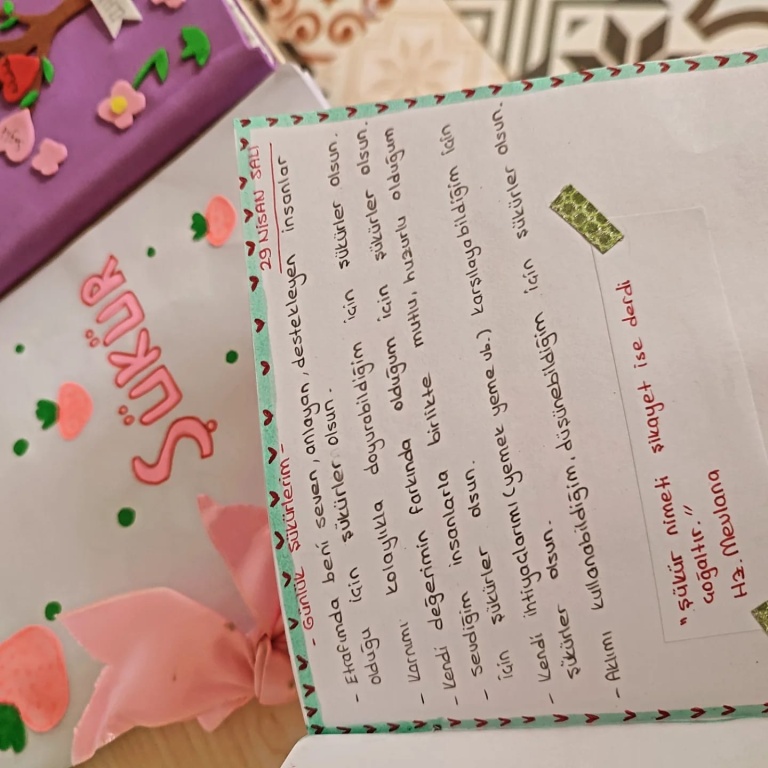 ŞÜKÜR
29 NİSAN SALI
- Günlük Şükürlerim -
- Etrafında beni seven, anlayan, destekleyen insanlar
olduğu için şükürler olsun.
- Karnımı kolaylıkla doyurabildiğim için şükürler olsun.
- Kendi değerimin farkında olduğum için şükürler olsun.
- Sevdiğim insanlarla birlikte mutlu, huzurlu olduğum
için şükürler olsun.
- Kendi ihtiyaçlarımı (yemek yeme vb.) karşılayabildiğim için
şükürler olsun.
- Aklımı kullanabildiğim, düşünebildiğim için şükürler olsun.
"Şükür nimeti şikayet ise derdi
çoğaltır."
Hz. Mevlana